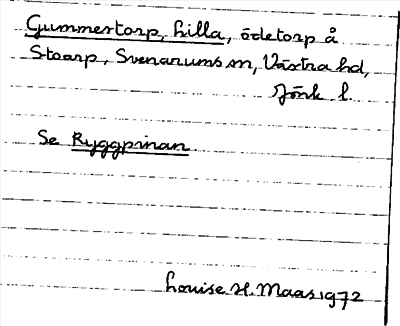 Gummertorp, Lilla, ödetorp å
Stoarp, Svenarums sn, Västra hd,
Jönk l.
Se Ryggpinan
Louise H. Maas 1972